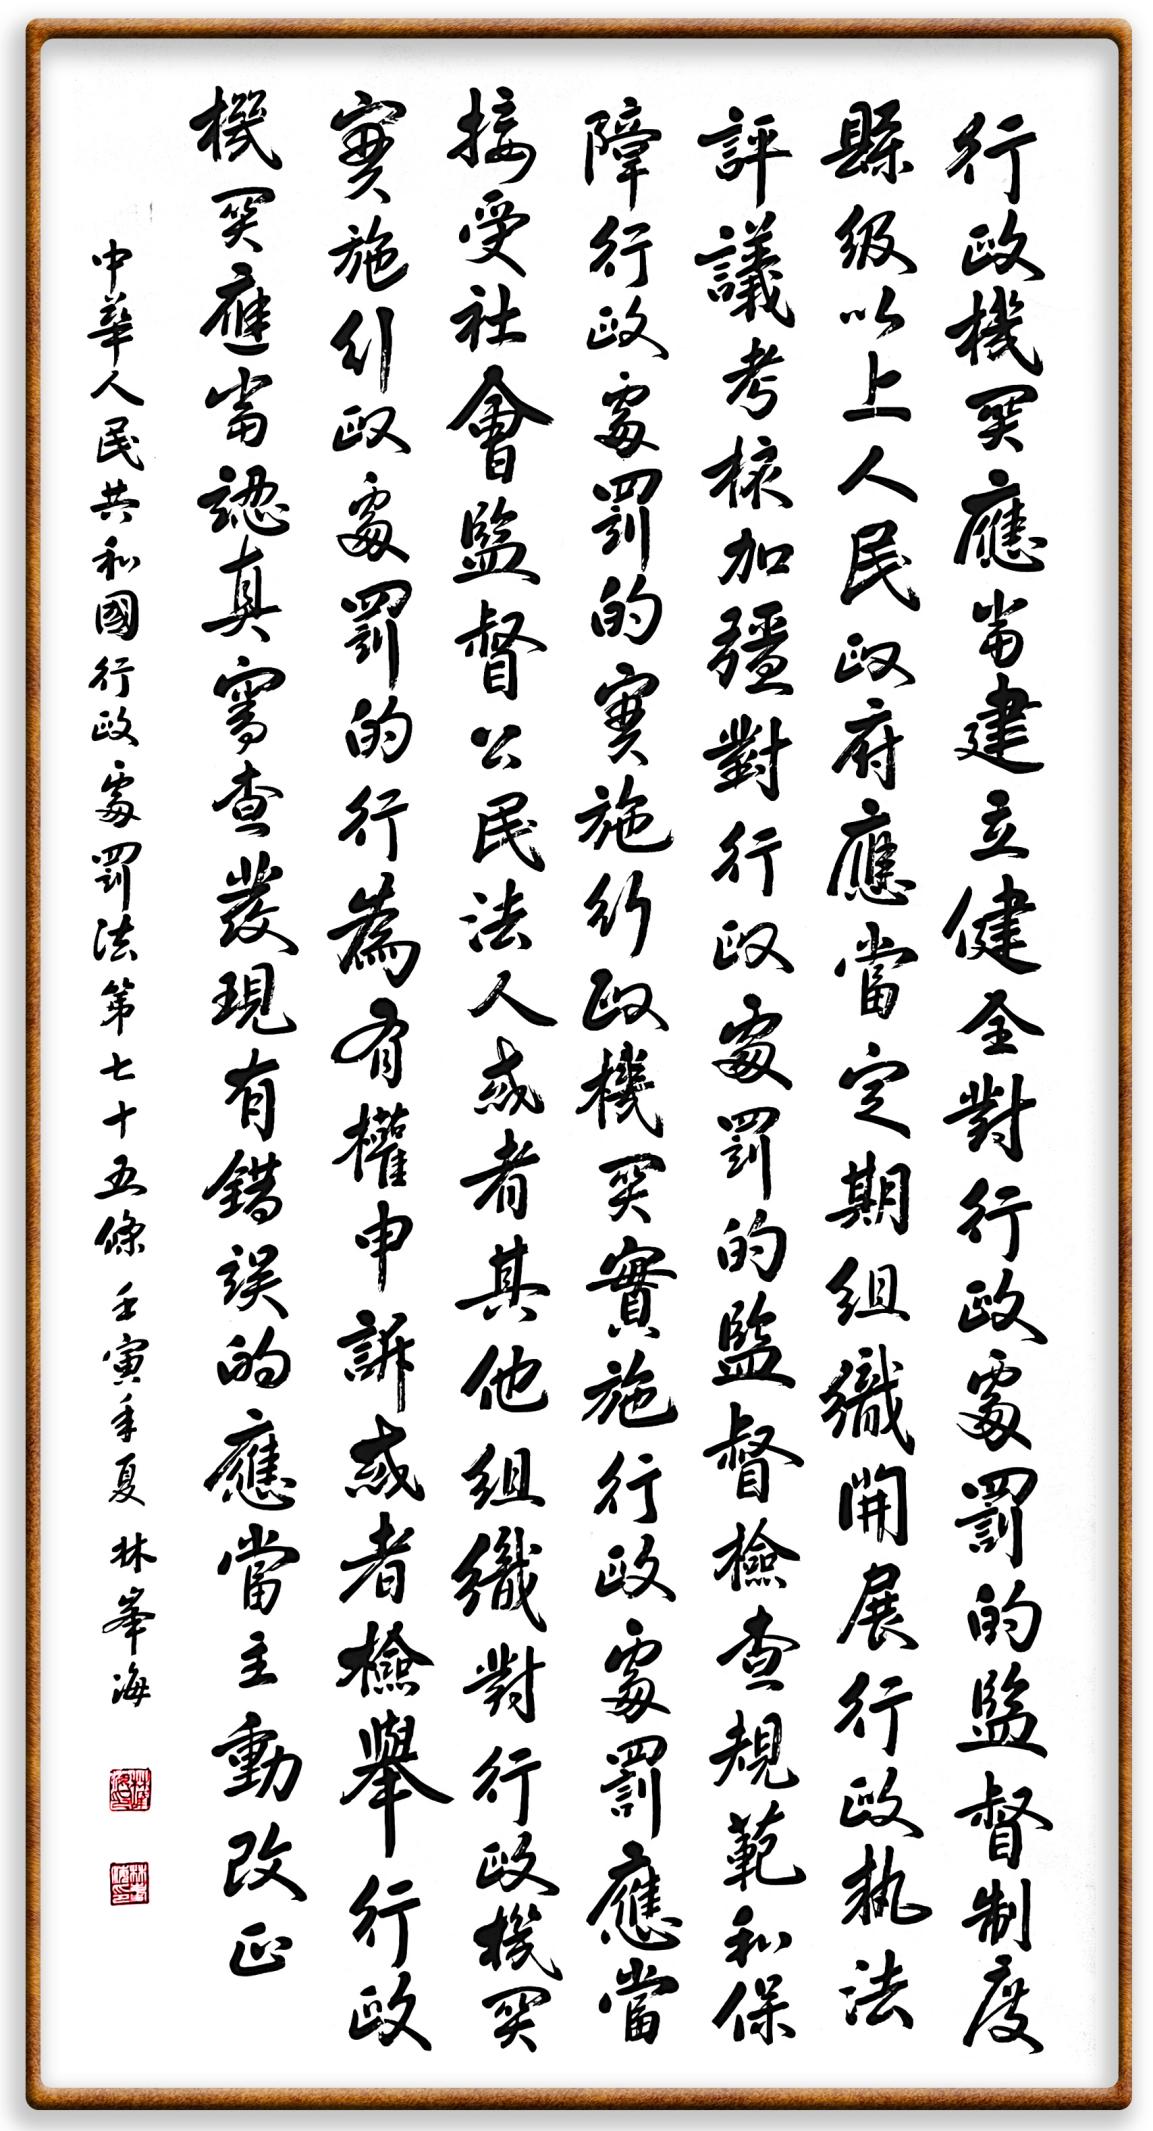 行政機関應當建立健全對行政處罰的監督制度
縣級以上人民政府應當定期組織開展行政執法
評議考核加強對行政處罰的監督檢查規範和保
障行政處罰的實施行政機関實施行政處罰應當
接受社會監督公民法人或者其他組織對行政機関
實施行政處罰的行為有權申訴或者檢舉行政
機関應當認真審查發現有錯誤的應當主動改正
中華人民共和國行政處罰法第七十五條 壬寅年夏 林峯海